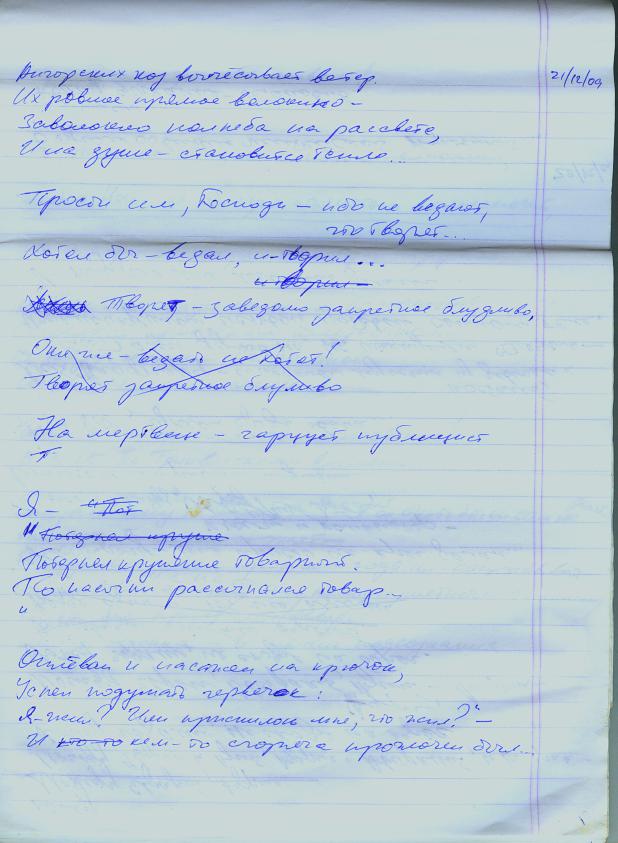 Ангорских коз вычёсывает ветер.
21/12/09
Их ровное прямое волокно –
Заволокло полнеба на рассвете,
И на душе – становится тепло...
Прости им, Господи – ибо не ведают,
что творят...
Хотел бы – ведал, и творил...
и творил –
Творят – заведомо запретное блудливо,
Они же – ведать не хотят!
Творят запретное блудливо
На мертвеце – гарцует публицист
Я – "Пот
" Потерпел круше
Потерпел крушение товарный.
По насыпи рассыпался товар...
"
Оплёван и насажен на крючок,
Успел подумать червячок:
Я – жил? Или приснилось мне, что жил?" –
И кто-то кем-то сгоряча проглочен был...